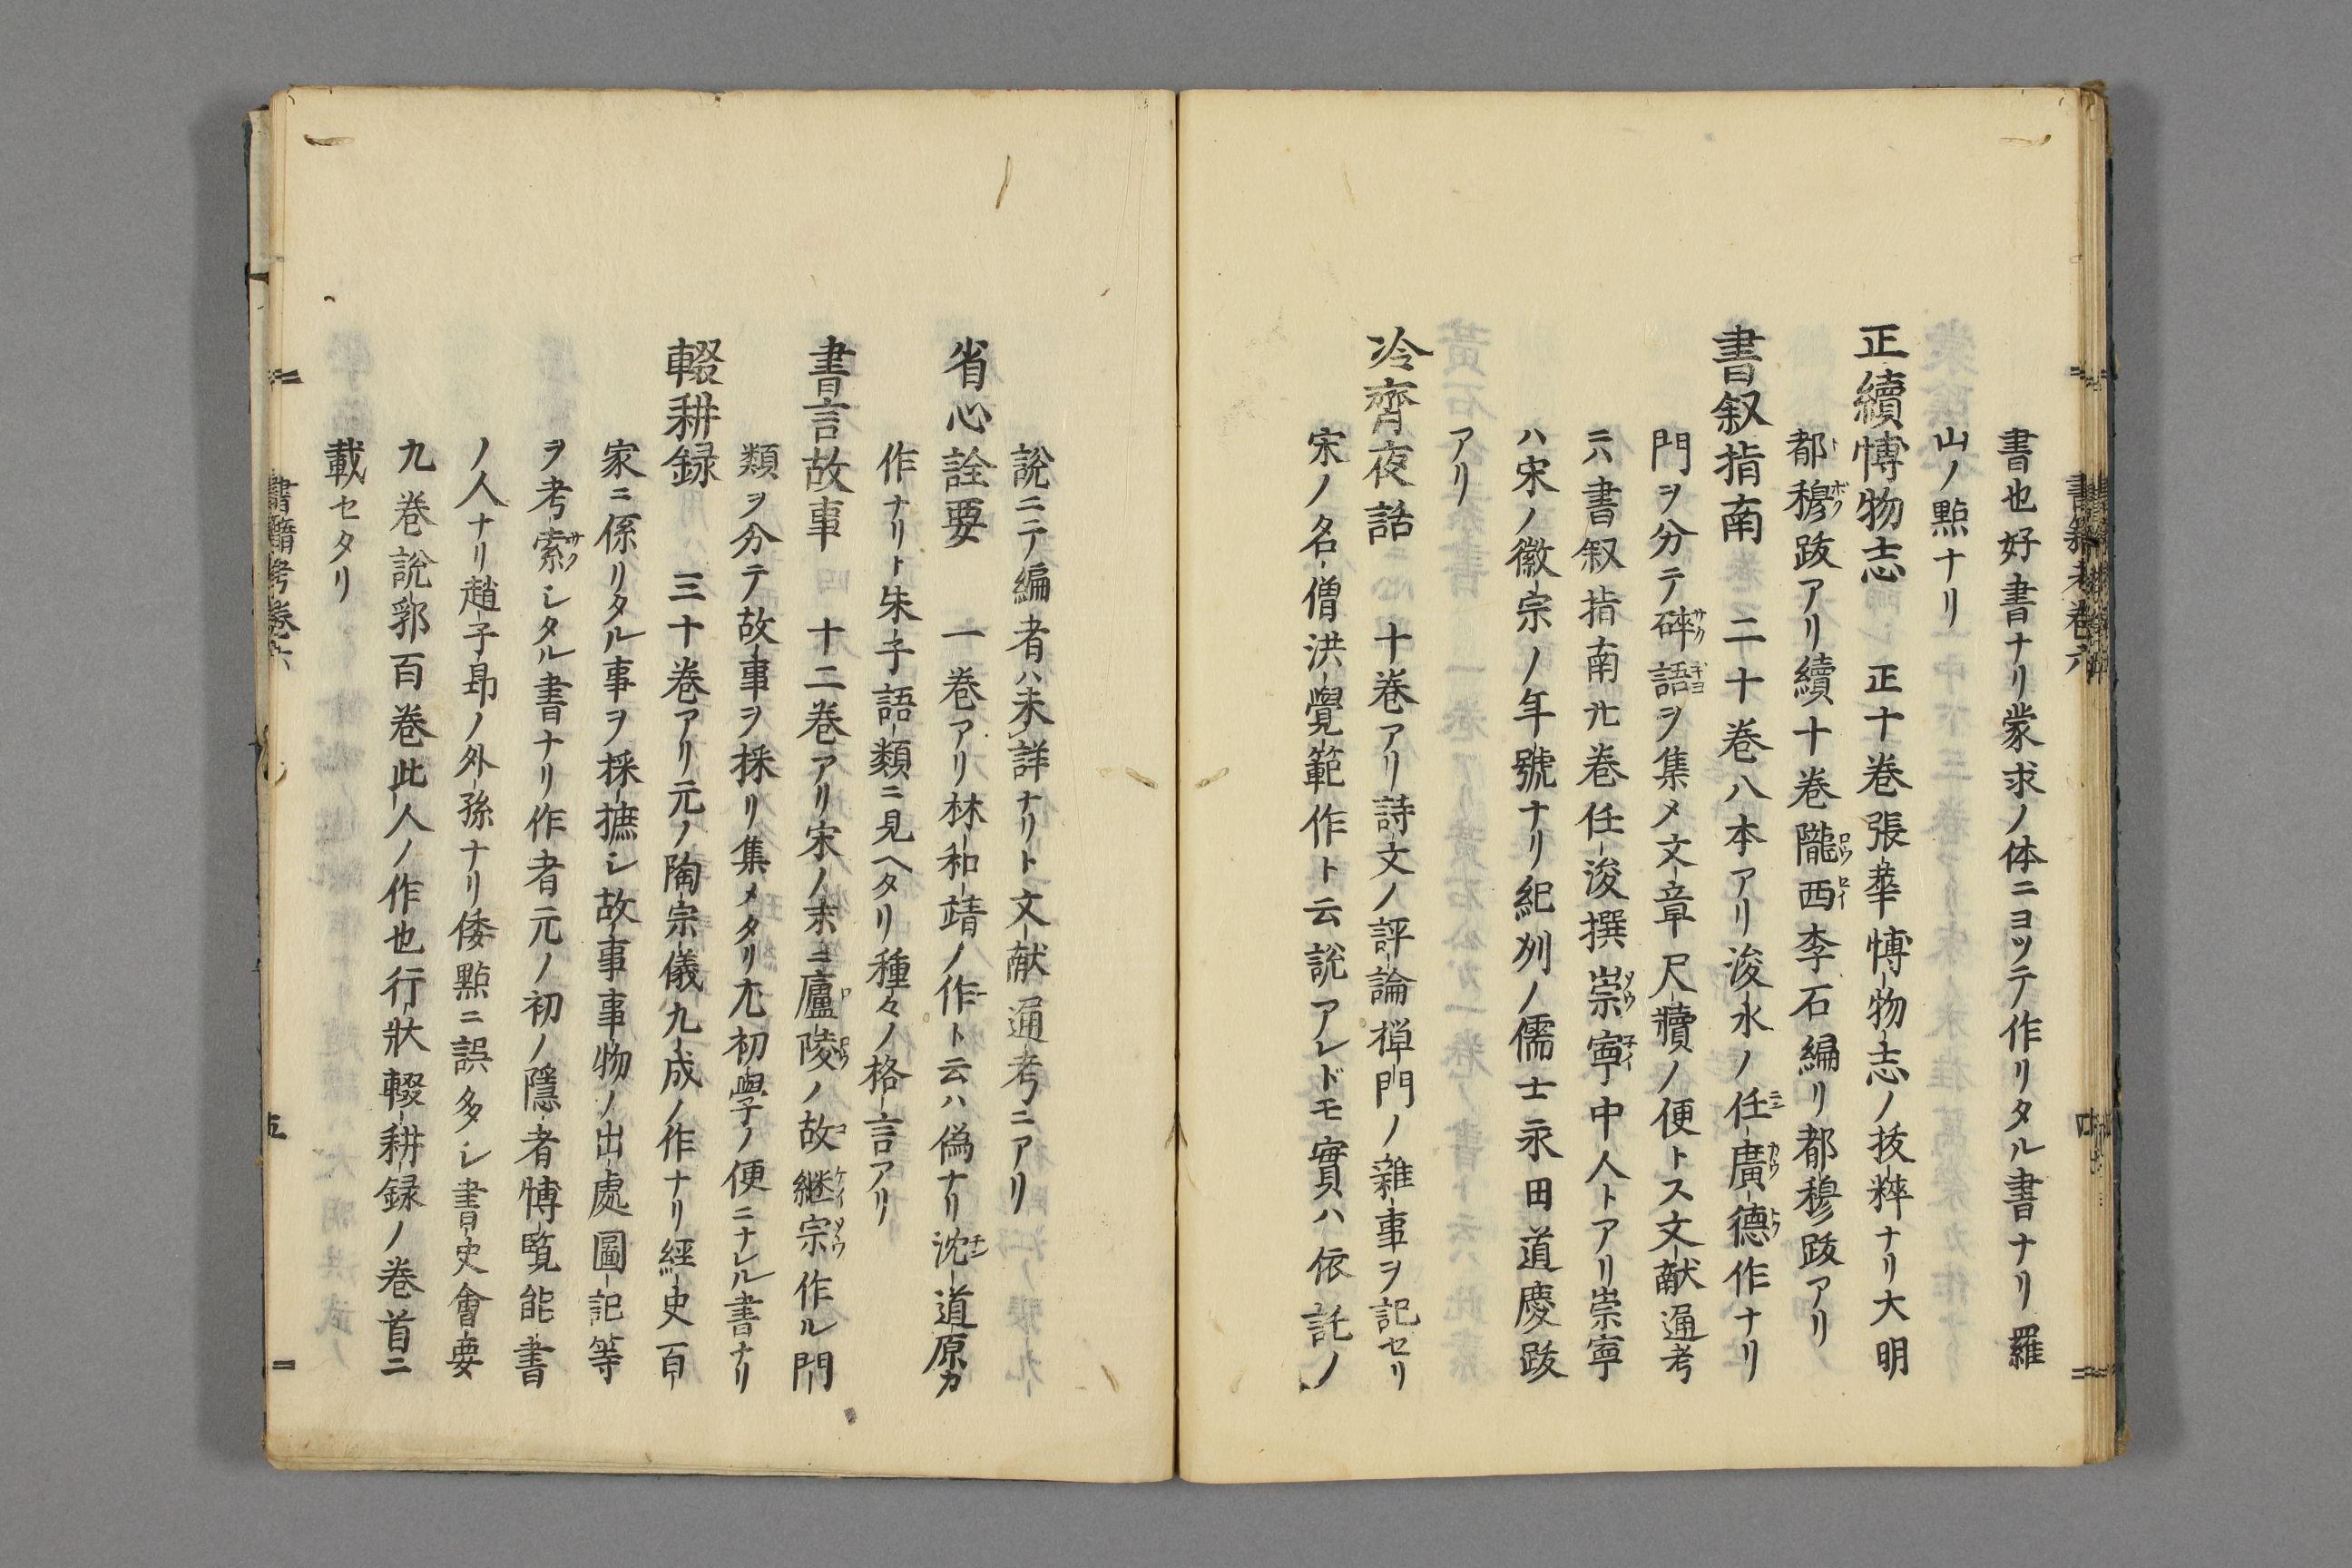 書也好書ナリ蒙求ノ体ニヨツテ作リタル書ナリ羅
山ノ點ナリ
正續愽物志　正十巻張華愽物志ノ抜粹ナリ大明
都穆跋アリ續十巻隴西李石編リ都穆跋アリ
書叙指南　二十巻八本アリ浚水ノ任廣德作ナリ
門ヲ分テ碎語ヲ集メ文章尺牘ノ便トス文献通考
ニハ書叙指南廿巻任浚撰崇寧中人トアリ崇寧
ハ宋ノ徽宗ノ年號ナリ紀刕ノ儒士永田道慶跋
アリ
冷齊夜話　十巻アリ詩文ノ評論禅門ノ雜事ヲ記セリ
宋ノ名僧洪覺範作ト云説アレドモ實ハ依託ノ
説ニテ編者ハ未詳ナリト文献通考ニアリ
省心詮要　一巻アリ林和靖ノ作ト云ハ偽ナリ沈道原カ
作ナリト朱子語類ニ見ヘタリ種々ノ格言アリ
書言故事　十二巻アリ宋ノ末ニ廬陵ノ故継宗作ル門
類ヲ分テ故事ヲ採リ集メタリ尤初學ノ便ニナレル書ナリ
輟耕録　三十巻アリ元ノ陶宗儀九成ノ作ナリ經史百
家ニ係リタル事ヲ採摭シ故事事物ノ出處圖記等
ヲ考索シタル書ナリ作者元ノ初ノ隱者愽覧能書
ノ人ナリ趙子昻ノ外孫ナリ倭點ニ誤多シ書史會要
九巻説郛百巻此人ノ作也行狀輟耕録ノ巻首ニ
載セタリ
書籍考巻六
五